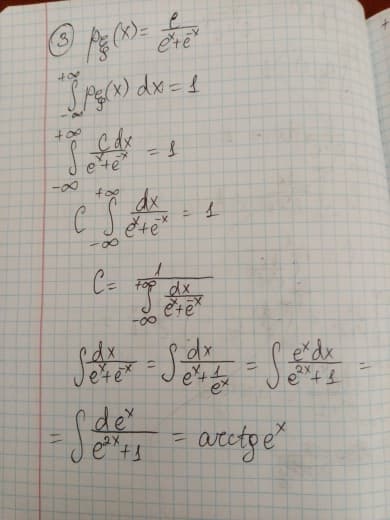 ③ p_ξ(x) = c/(e^x+e^-x)
∫_{-∞}^{+∞} p_ξ(x) dx = 1
∫_{-∞}^{+∞} C dx/(e^x+e^-x) = 1
C ∫_{-∞}^{+∞} dx/(e^x+e^-x) = 1
C = 1/(∫_{-∞}^{+∞} dx/(e^x+e^-x))
∫ dx/(e^x+e^-x) = ∫ dx/(e^x+1/e^x) = ∫ e^x dx/(e^2x+1) =
= ∫ de^x/(e^2x+1) = arctg e^x